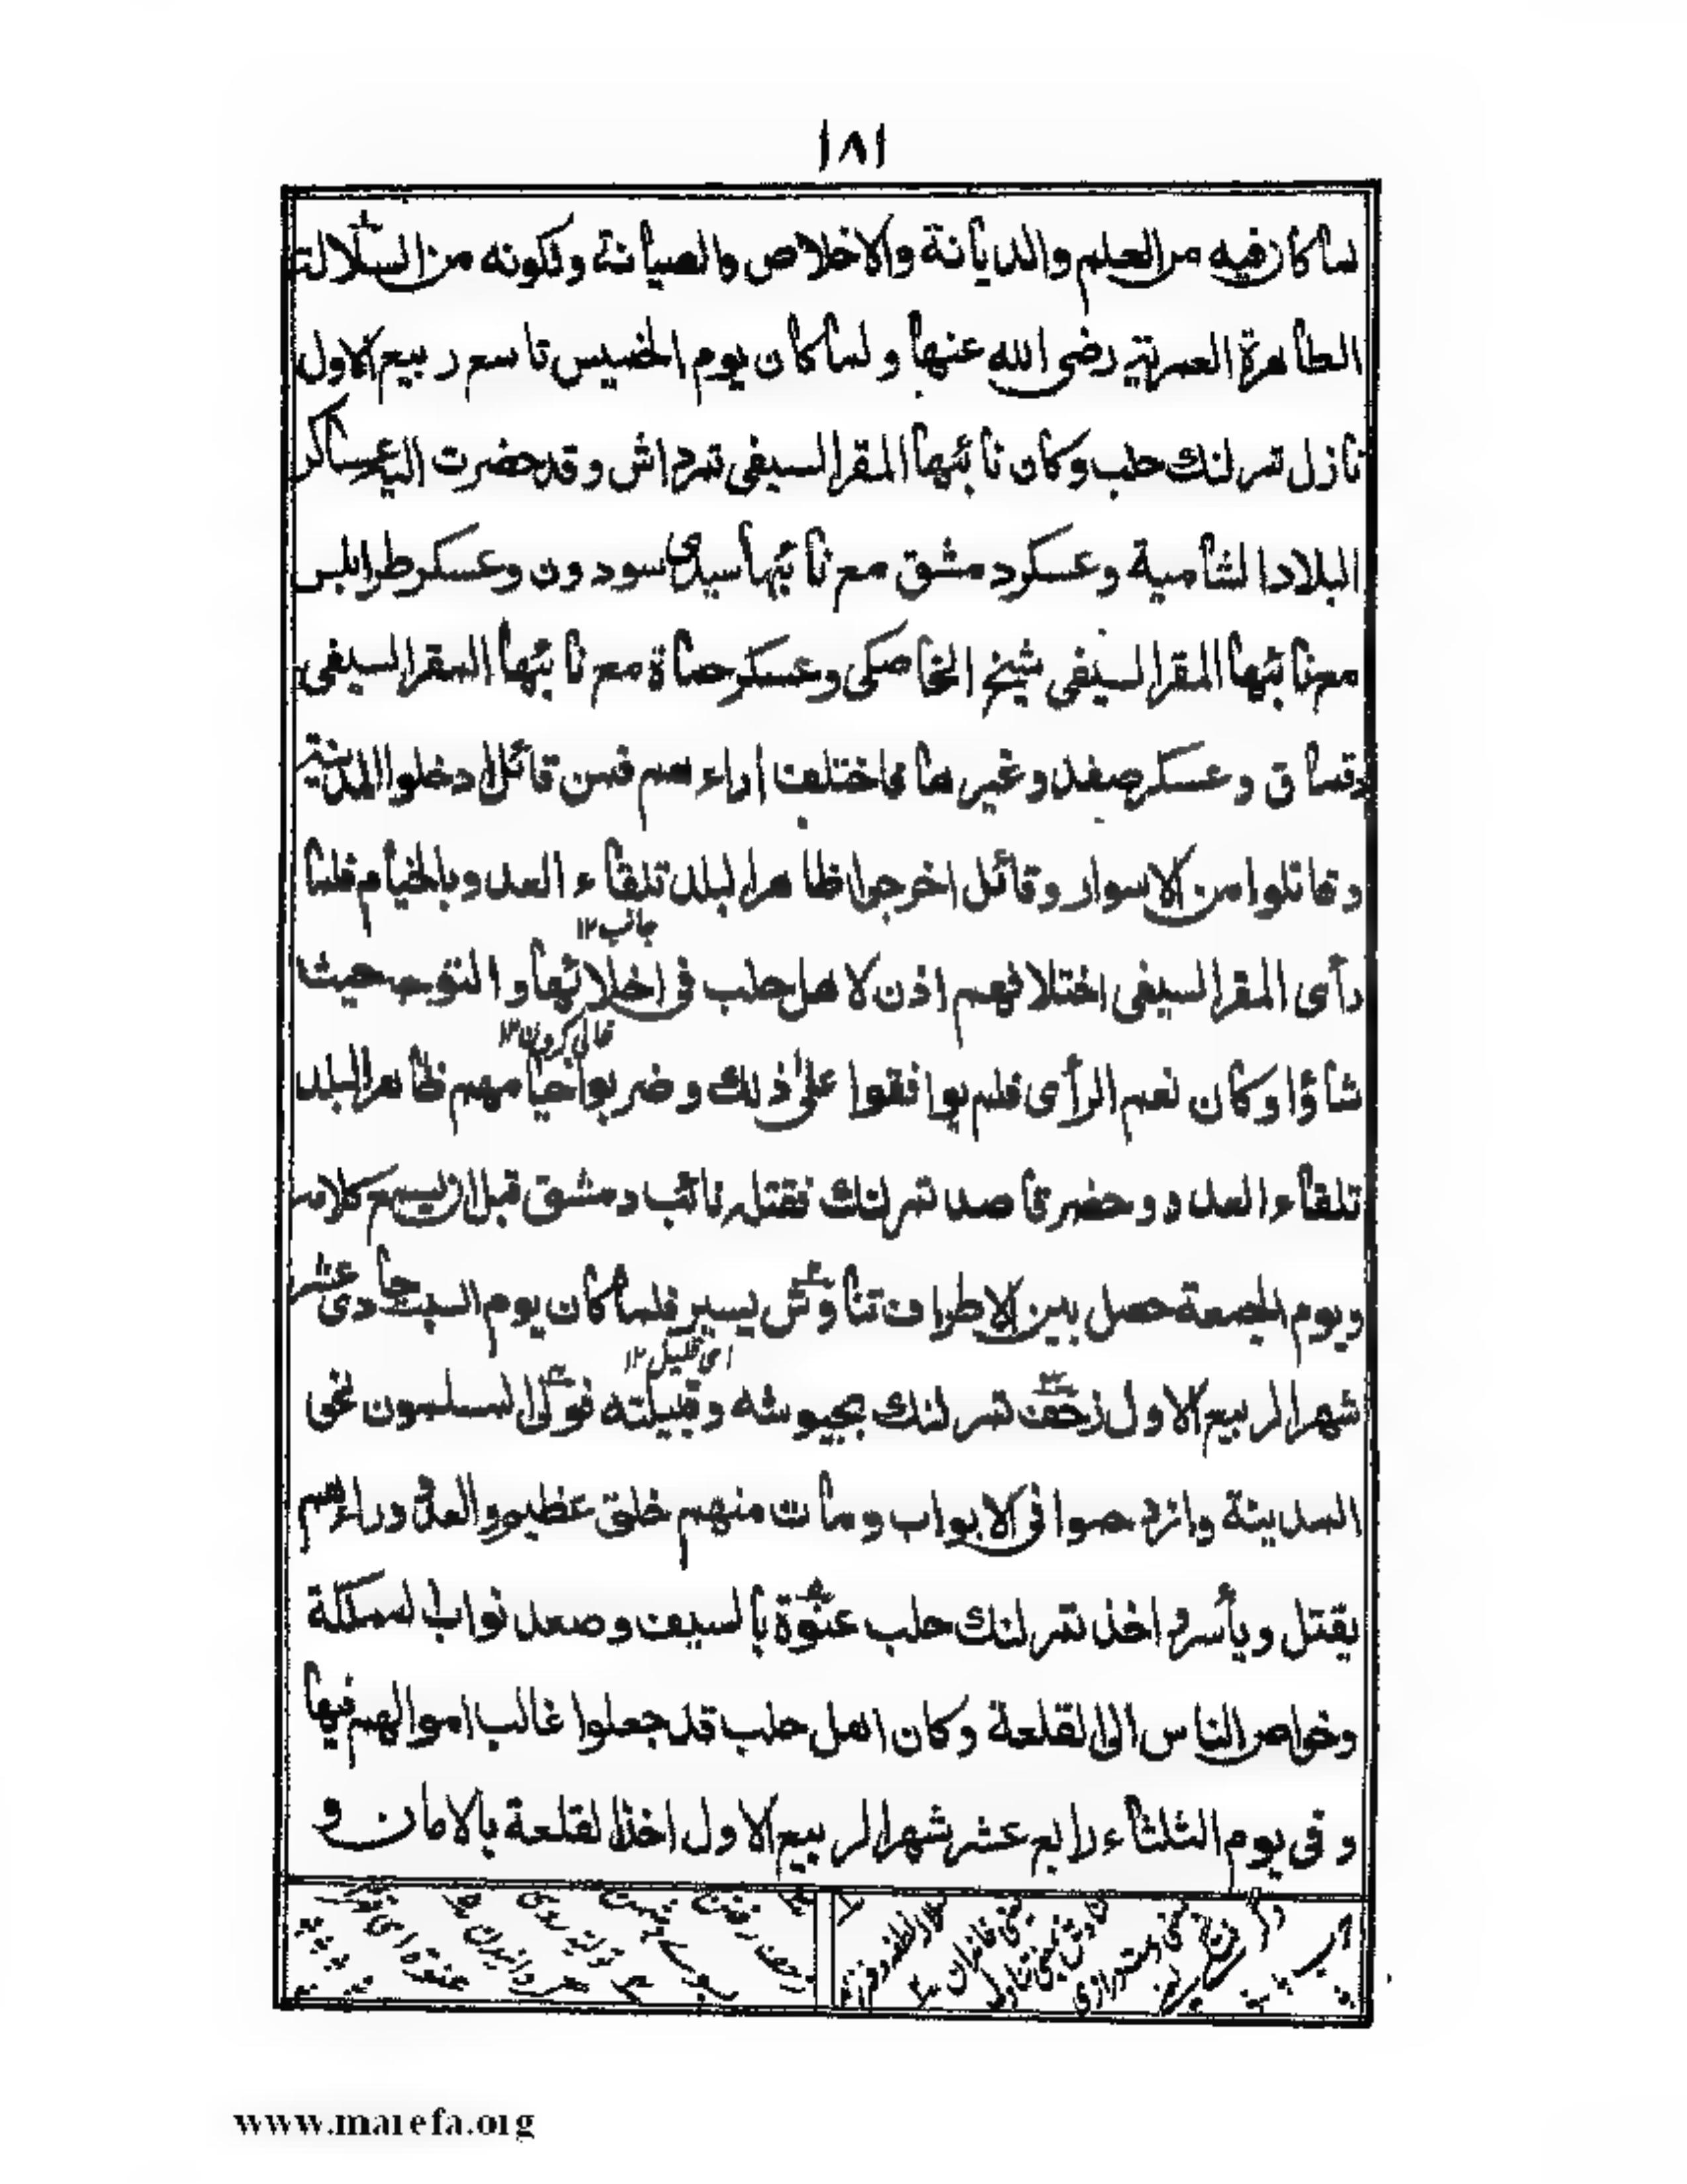 ١٨١
لما كان فيه من العلم والديانة والاخلاص والصيانة ولكونه من السلالة
الطاهرة العمرية رضى الله عنها ولما كان يوم الخميس تاسع ربيع الاول
نازل تمرلنك حلب وكان نائبها المقر السيفى تمرداش وقد حضرت اليه عساكر
البلاد الشامية وعسكر دمشق مع نائبها سيدى سودون وعسكر طرابلس
مع نائبها المقر السيفى شيخ الخاصكى وعسكر حماة مع نائبها المقر السيفى
دقماق وعسكر صفد وغيرها فاختلفت اراءهم فمن قائل ادخلوا المدينة
وقاتلوا من الاسوار وقائل اخرجوا ظاهر البلد تلقاء العدو بالخيام فلما
جانب ١٢
رأى المقر السيفى اختلافهم اذن لاهل حلب فى اخلائها والتوجه حيث
خالى كردن ١٢
شاؤا وكان نعم الرأى فلم يوافقوا على ذلك وضربوا خيامهم ظاهر البلد
تلقاء العدو وحضر قاصد تمرلنك فقتله نائب دمشق قبل ان يسمع كلامه
ويوم الجمعة حصل بين الاطراف تناوش يسير فلما كان يوم السبت حادى عشر
اى قليل ١٢
شهر الربيع الاول زحف تمرلنك بجيوشه وقبيلته فولى المسلمون نحو
المدينة وازدحموا فى الابواب ومات منهم خلق عظيم والعدو وراءهم
يقتل ويأسر واخذ تمرلنك حلب عنوة بالسيف وصعد نواب المملكة
وخواص الناس الى القلعة وكان اهل حلب قد جعلوا غالب اموالهم فيها
وفى يوم الثلثاء رابع عشر شهر الربيع الاول اخذ القلعة بالامان و
www.marefa.org